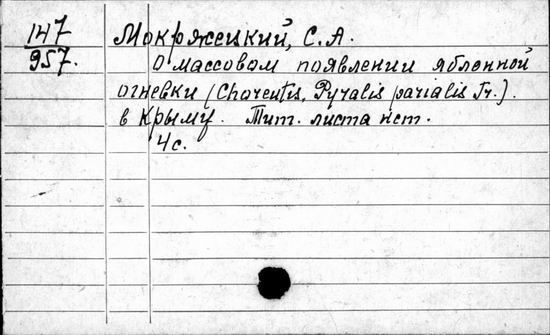 147
957.
Мокряжецкий, С.А.
О массовом появлении яблонной
огневки (Choreutis, Pyralis parialis Tr.).
в Крыму. Тит. листа нет.
4с.